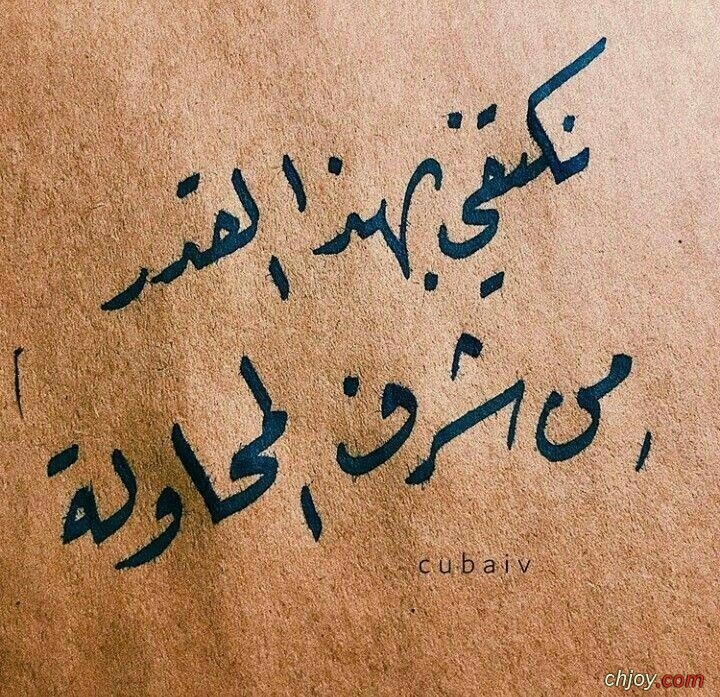 نكتفي بهذا القدر
من شرف المحاولة
cubaiv
chjoy.com